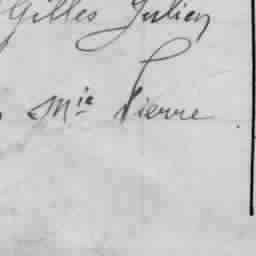 Gilles Julien
Mie Pierre